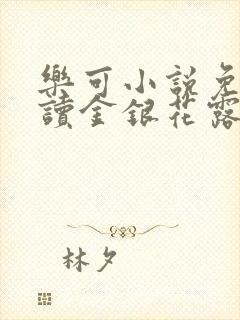 樂可小說免
讀金銀花露
林夕